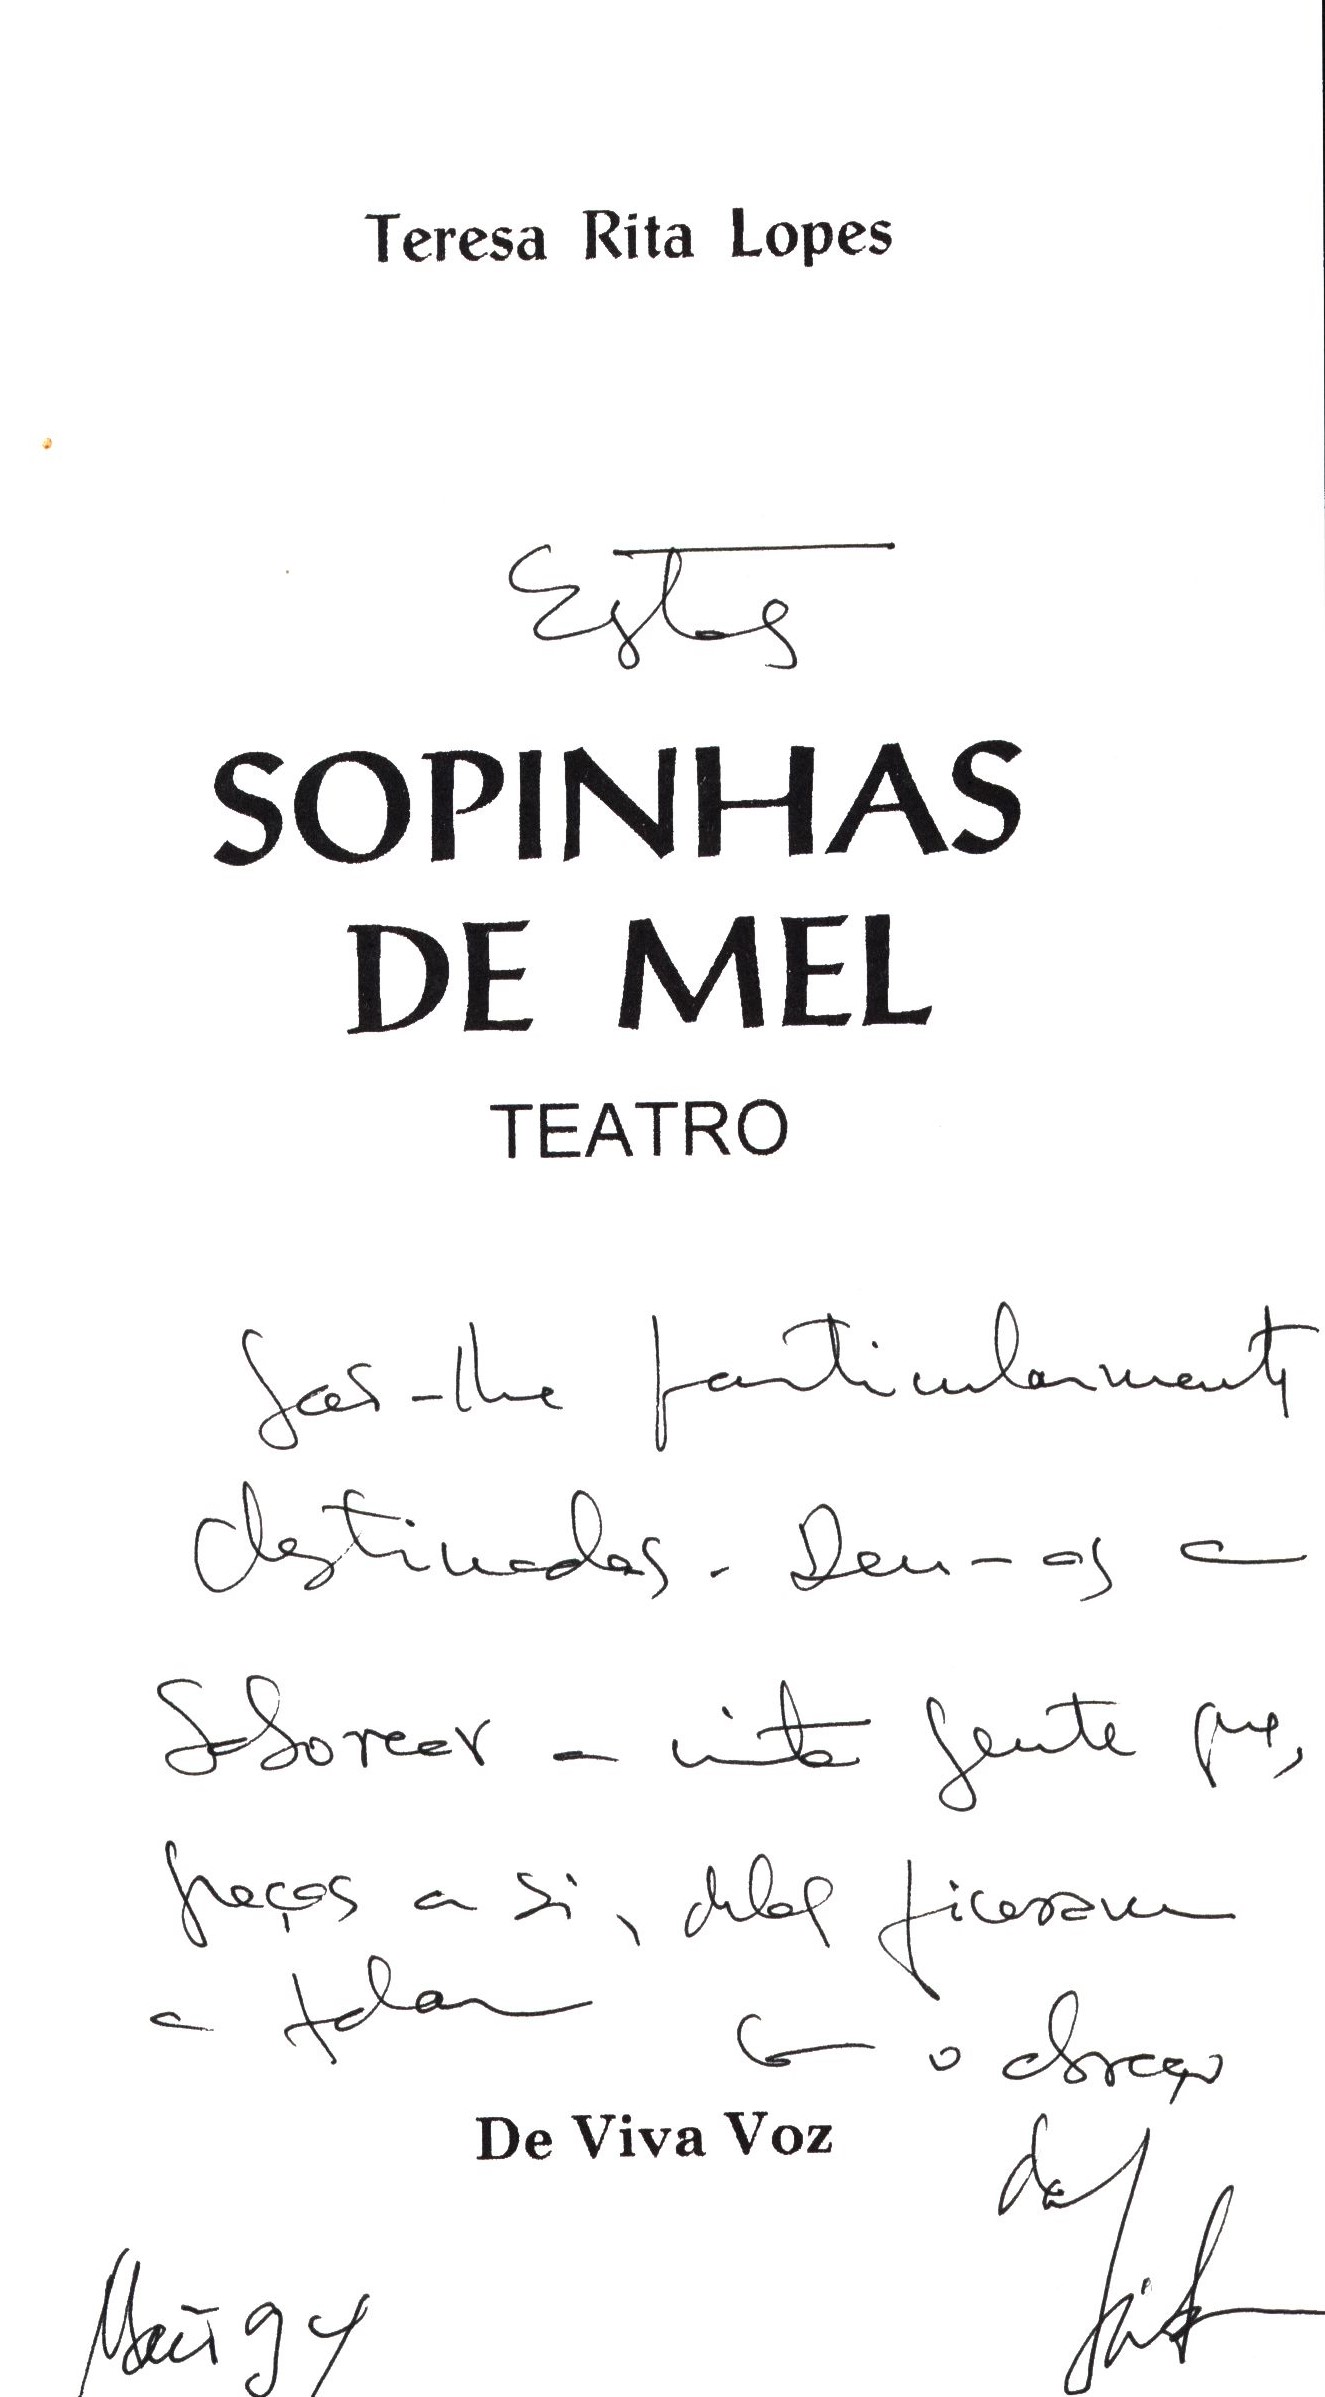 Teresa Rita Lopes
Estas
SOPINHAS
DE MEL
TEATRO
são-lhe particularmente
destinadas. Deu-as a
saborear a muita gente que,
graças a si, delas ficaram
a falar Com o abraço
De Viva Voz
da
94